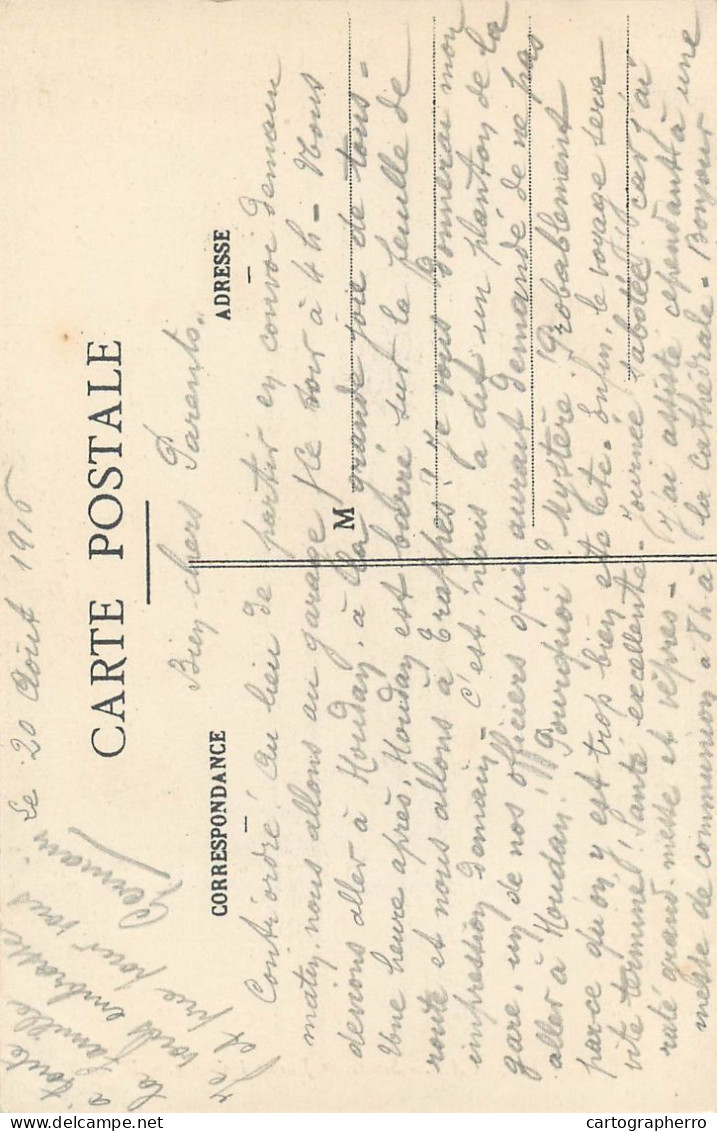 Le 20 Août 1916
CARTE POSTALE
CORRESPONDANCE
ADRESSE
M
Bien chers Parents.
Contr'ordre! Au lieu de partir en convoi demain
matin, nous allons au garage le soir à 4h - Nous
devions aller à Houdan, à la grande joie de tous -
Une heure après, Houdan est barré sur la feuille de
route et nous allons à Trappes! Je vous donnerai mon
impression demain - C'est, nous a dit un planton de la
gare, un de nos officiers qui aurait demandé de ne pas
aller à Houdan! Pourquoi? Mystère! Probablement
parce qu'on y est trop bien et bête. Enfin, le voyage sera
vite terminé! Santé excellente - Journée car j'ai
raté grand-messe et vêpres - J'ai assisté cependant à une
messe de communion à 8h à la cathédrale - Bonjour
à toute
la famille
Je vous embrasse
et prie pour vous
Germain
cartographerro